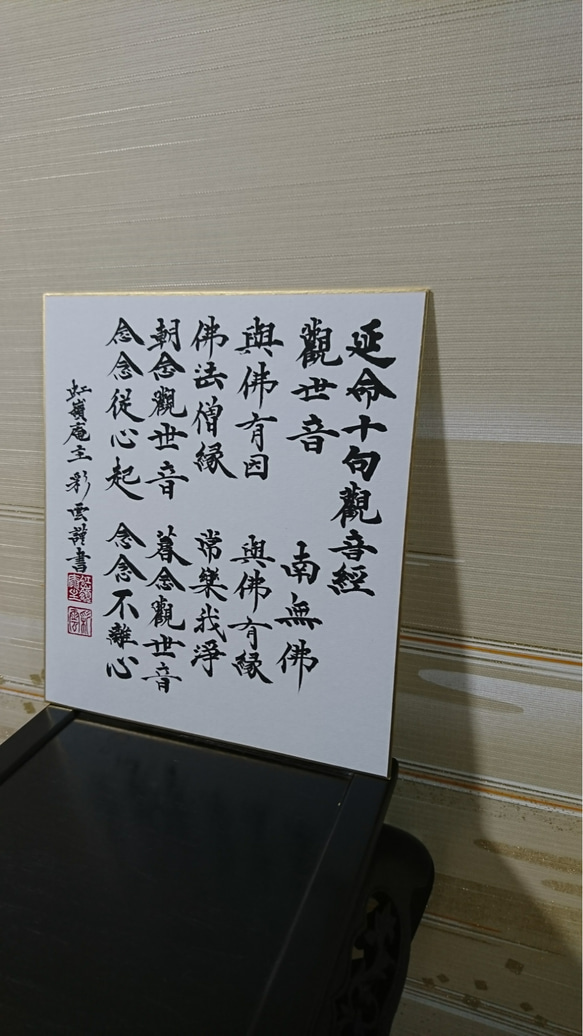 延命十句觀音經
觀世音 南無佛
與佛有因 與佛有縁
佛法僧縁 常樂我淨
朝念觀世音 暮念觀世音
念念從心起 念念不離心
虹嶺庵主 彩雲謹書